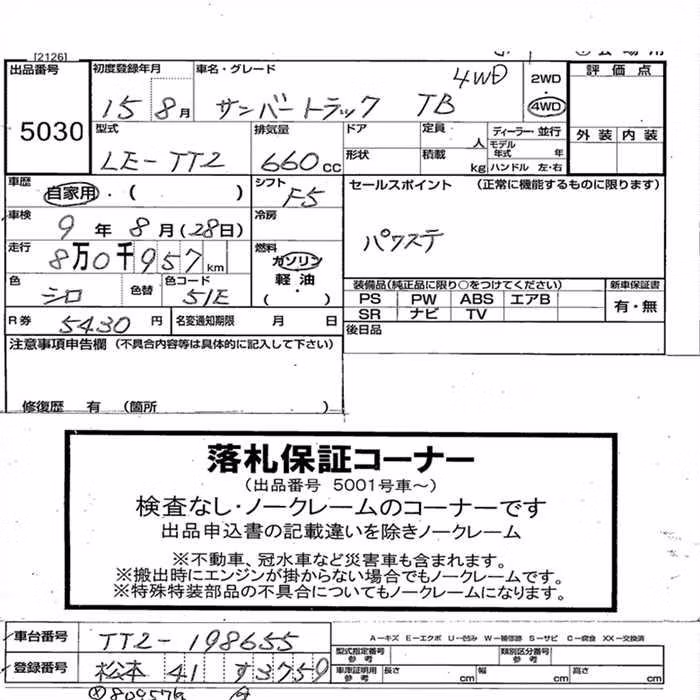 [2126]
出品番号 5030
初度登録年月 15 8月
車名・グレード サンバートラック TB 4WD
2WD
4WD
評価点
外装 内装
型式 LE-TT2
排気量 660cc
ドア
形状
定員 人
積載 kg
ディーラー・並行
モデル年式 年
ハンドル 左・右
車歴 自家用・( )
シフト F5
セールスポイント (正常に機能するものに限ります)
パワステ
車検 9年8月(28日)
冷房
走行 8万0千957km
燃料 ガソリン
軽油
( )
色 シロ 色替
色コード 51E
装備品(純正品に限り○をつけてください)
PS PW ABS エアB
SR ナビ TV
新車保証書
有・無
R券 5430円
名変通知期限 月 日
後日品
注意事項申告欄 (不具合内容等は具体的に記入して下さい)
修復歴 有 (箇所 )
落札保証コーナー
(出品番号 5001号車～)
検査なし・ノークレームのコーナーです
出品申込書の記載違いを除きノークレーム
※不動車、冠水車など災害車も含まれます。
※搬出時にエンジンが掛からない場合でもノークレームです。
※特殊特装部品の不具合についてもノークレームになります。
車台番号 TT2-198655
A-キズ E-エクボ U-凹み W-補修跡 S-サビ C-腐食 XX-交換済
型式指定番号 参考
類別区分番号 参考
登録番号 松本 41 す3759
車庫証明用 参考 長さ cm 幅 cm 高さ cm